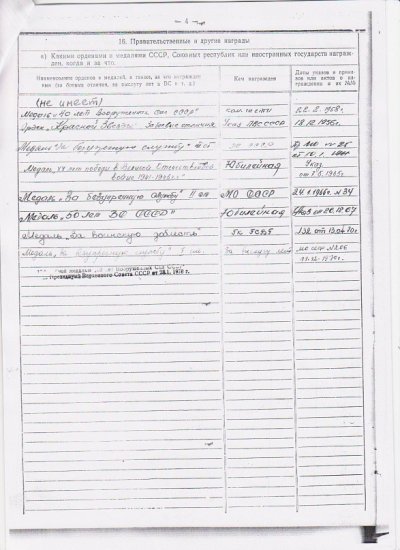 — 4 —
16. Правительственные и другие награды
а) Какими орденами и медалями СССР, Союзных республик или иностранных государств награжден, когда и за что.
Наименование орденов и медалей, а также, за что награжден (за боевые отличия, за выслугу лет в ВС и т. д.)
Кем награжден
Даты указов и приказов или актов о награждении и их №№
(не имеет)
Медаль „40 лет Вооруженных Сил СССР"
22.2.1958г.
Орден „Красной Звезды" За боевые отличия
Указ ПВС СССР
18.12.1956г.
Медаль „За безупречную службу"
Медаль „XX лет победы в Великой Отечественной
войне 1941-1945гг."
Юбилейная
Указ
от 7.5.1965г.
Медаль „За безупречную службу" II ст
МО СССР
24.1.1966г. №34
Медаль „50 лет ВС СССР"
Юбилейная
Медаль „За воинскую доблесть"
132 от 13.04.70г.
Медаль „За безупречную службу" I ст.
За выслугу лет
Вооруженных Сил СССР
Президиума Верховного Совета СССР от 28.1. 1978 г.